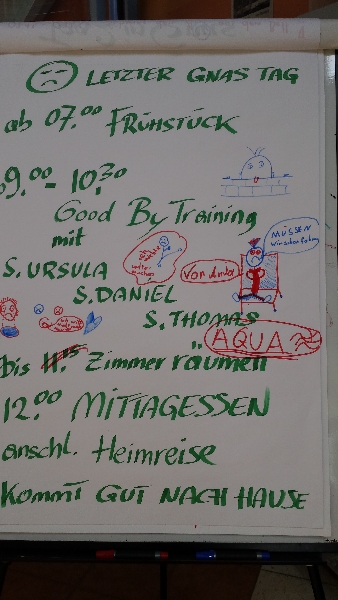 LETZTER GNAS TAG
ab 07.00 FRÜHSTÜCK
09.00 - 10.30
Good By Training
mit
MÜSSEN
S. URSULA
S. DANIEL
S. THOMAS
AQUA
bis 11.15 Zimmer räumen
12.00 MITTAGESSEN
anschl. Heimreise
KOMMT GUT NACH HAUSE